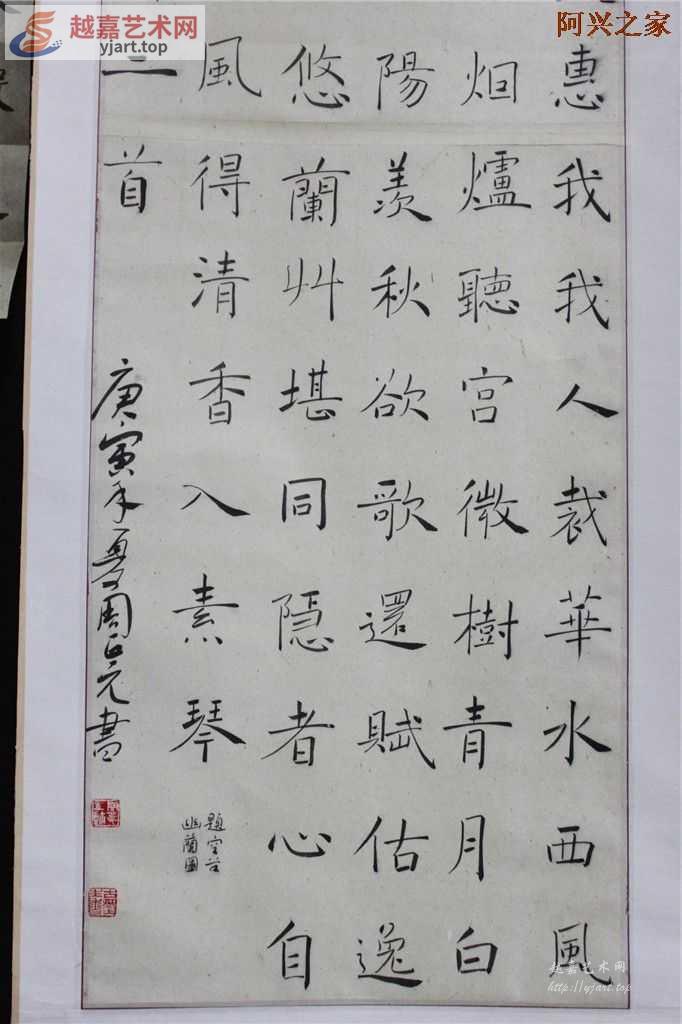 越嘉艺术网
yjart.top
阿兴之家
惠我我人裁華水西風
烟爐聽宮微樹青月白
陽羡秋欲歌還賦估逸
悠蘭艸堪同隠者心自
風得清香入素琴
題空谷
幽蘭圖
二首
庚寅年夏周正元書
越嘉艺术网
http://yjart.top